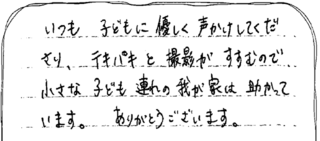 いつも 子どもに 優しく 声かけしてくだ
さり、テキパキと 撮影が すすむので、
小さな 子ども 連れの 我が家は 助かって
います。 ありがとうございます。